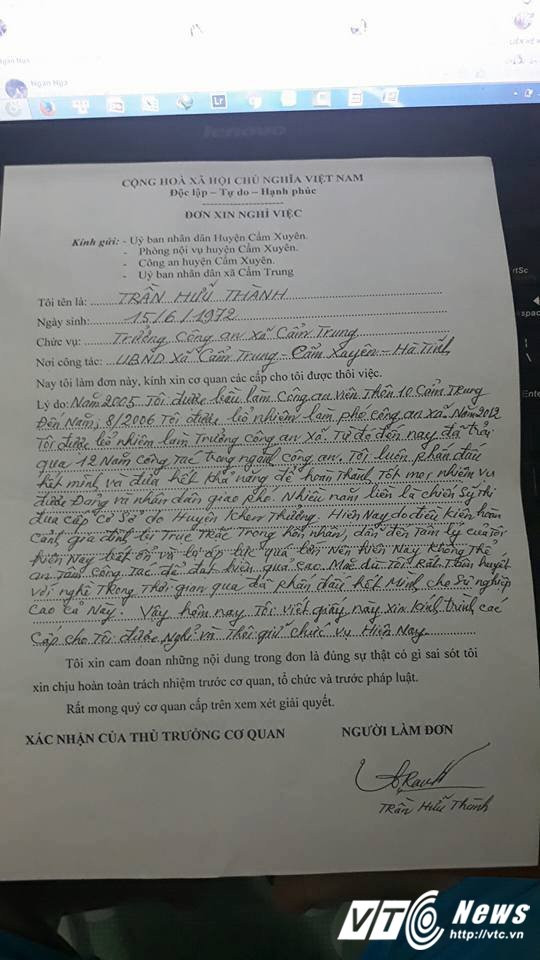 Ngan Nga
Lr
lenovo
CỘNG HOÀ XÃ HỘI CHỦ NGHĨA VIỆT NAM
Độc lập – Tự do – Hạnh phúc
ĐƠN XIN NGHỈ VIỆC
Kính gửi: - Uỷ ban nhân dân Huyện Cẩm Xuyên.
- Phòng nội vụ huyện Cẩm Xuyên.
- Công an huyện Cẩm Xuyên.
- Uỷ ban nhân dân xã Cẩm Trung
Tôi tên là: TRẦN HỮU THÀNH
Ngày sinh: 15/6/1972
Chức vụ: Trưởng Công an xã Cẩm Trung
Nơi công tác: UBND xã Cẩm Trung - Cẩm Xuyên - Hà Tĩnh
Nay tôi làm đơn này, kính xin cơ quan các cấp cho tôi được thôi việc.
Lý do: Năm 2005 Tôi được bầu làm Công an viên Thôn 10 Cẩm Trung
Đến Năm, 8/2006 Tôi được bổ nhiệm làm phó công an xã. Năm 2012
Tôi được bổ nhiệm làm Trưởng công an xã. Từ đó đến nay đã trải
qua 12 Năm công tác trong ngành công an. Tôi luôn phấn đấu
hết mình và đưa hết khả năng để hoàn thành tốt mọi nhiệm vụ
được Đảng và nhân dân giao phó. Nhiều năm liền là chiến sỹ thi
đua cấp cơ sở do Huyện khen thưởng. Hiện Nay do điều kiện hoàn
cảnh gia đình bị trục trặc trong hôn nhân, dẫn đến tâm lý của tôi
hiện Nay bất ổn và bị áp lực quá lớn nên hiện Nay không thể
an tâm công tác để đạt hiệu quả cao Mặc dù Tôi Rất tâm huyết
với nghề Trong thời gian qua đã phấn đấu hết Mình cho sự nghiệp
cao cả Này. Vậy hôm nay Tôi viết giấy này xin kính trình các
cấp cho tôi được Nghỉ và thôi giữ chức vụ Hiện Nay
Tôi xin cam đoan những nội dung trong đơn là đúng sự thật có gì sai sót tôi
xin chịu hoàn toàn trách nhiệm trước cơ quan, tổ chức và trước pháp luật.
Rất mong quý cơ quan cấp trên xem xét giải quyết.
XÁC NHẬN CỦA THỦ TRƯỞNG CƠ QUAN NGƯỜI LÀM ĐƠN
Trần Hữu Thành
VTC News
http://vtc.vn